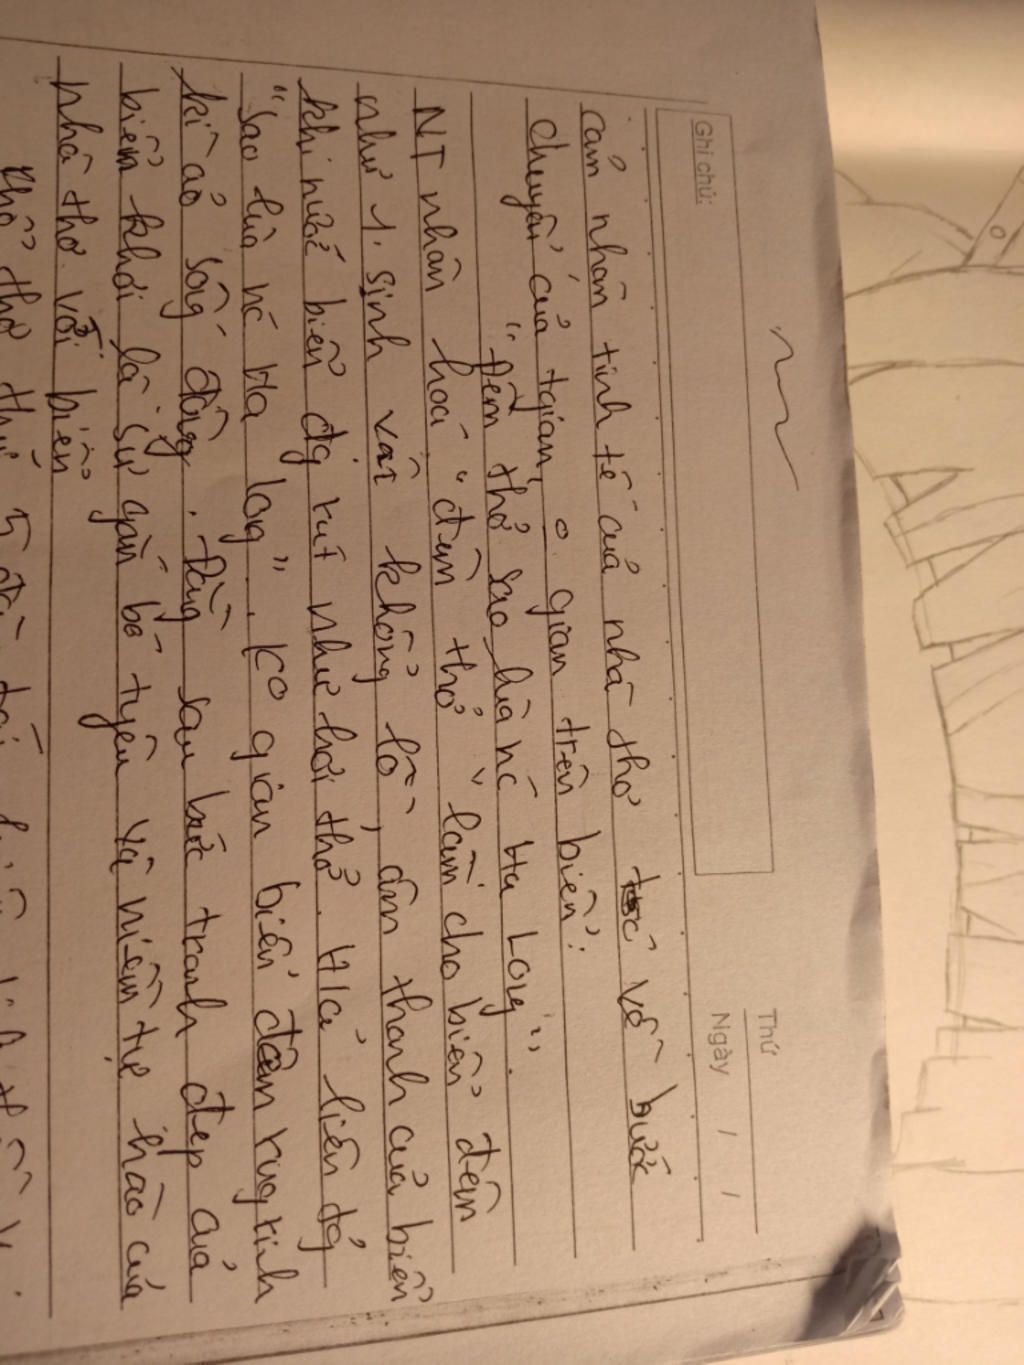 Thứ
Ngày / /
Ghi chú:
cảm nhận tinh tế của nhà thơ về bước
chuyển của tgian, o gian trên biển:
"Đêm thở sao lùa nc Hạ Long".
NT nhân hoá "đêm thở" làm cho biển đêm
như 1 sinh vật khổng lồ, âm thanh của biển
khi nước biển dg rút như hơi thở. H/ả liên tg
"sao lùa nc Hạ Long". Ko gian biển đêm rung rinh
kì ảo sống động. Đằng sau bức tranh đẹp của
biển khơi là sự gắn bó tyêu và niềm tự hào của
nhà thơ với biển
khổ thơ thứ 5